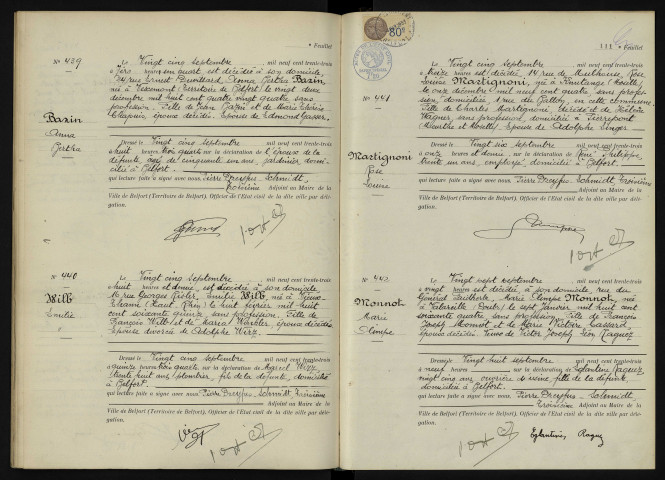 • Feuillet
N° 439
Bazin
Anna
Bertha
Le Vingt cinq septembre mil neuf cent trente-trois
à zéro heures un quart est décédée à son domicile,
rue Ernest Duvillard Anna Bertha Bazin,
née à (Territoire de Belfort) le vingt deux
décembre mil huit cent quatre vingt quatre, sans
profession. Fille de Jean Bazin et de Marie
époux décédés. Epouse de Edmond Gasser.
Dressé le Vingt cinq septembre mil neuf cent trente-trois
à huit heures trois quarts sur la déclaration de l'époux de la
défunte, âgé de cinquante un ans, jardinier, domi-
cilié à Belfort
qui lecture faite a signé avec nous, Pierre Dreyfus-Schmidt,
troisième Adjoint au Maire de la
Ville de Belfort (Territoire de Belfort), Officier de l'Etat civil de la dite ville par délé-
gation.
N° 440
Wilb
Emilie
Le Vingt cinq septembre mil neuf cent trente-trois
à huit heures et demie, est décédée à son domicile
16 rue Georges Risler, Emilie Wilb, née à Vieux-
Thann (Haut-Rhin) le huit février mil huit
cent soixante quinze, sans profession. Fille de
François Wilb et de Maria époux décédés
Epouse divorcée de Adolphe Wirz.
Dressé le Vingt cinq septembre mil neuf cent trente-trois
à quinze heures trois quarts sur la déclaration de Marcel Wirz,
trente huit ans, fils de la défunte, domicilié
à Belfort.
qui lecture faite a signé avec nous, Pierre Dreyfus-Schmidt, troisième
Adjoint au Maire de la
Ville de Belfort (Territoire de Belfort), Officier de l'Etat civil de la dite ville par délé-
gation.
111 • Feuillet
N° 441
Mastignoni
Rose
Louise
Le Vingt cinq septembre mil neuf cent trente-trois
à treize heures est décédée, 14 rue de Mulhouse, Rose
Louise Mastignoni, née à (Moselle)
le onze décembre mil neuf cent quatre, sans profes-
sion, domiciliée 1 rue du Vallon, en cette commune.
Fille de Charles Mastignoni, décédé et de
Wagner, sans profession, domiciliée à Pierrepont
(Meurthe et Moselle). Epouse de Adolphe Singer.
Dressé le Vingt six septembre mil neuf cent trente-trois
à onze heures et demie, sur la déclaration de René
trente un ans, employé, domicilié à Belfort.
qui lecture faite a signé avec nous, Pierre Dreyfus-Schmidt, troisième
Adjoint au Maire de la
Ville de Belfort (Territoire de Belfort), Officier de l'Etat civil de la dite ville par délé-
gation.
N° 442
Monnot
Marie
Olimpe
Le Vingt sept septembre mil neuf cent trente-trois
à vingt heures est décédée à son domicile, rue du
Général Faidherbe, Marie Olimpe Monnot, née
à (Doubs) le sept janvier mil huit cent
soixante quatre, sans profession. Fille de François
Joseph Monnot et de Marie Victoire Cassard,
époux décédés. Veuve de Victor Joseph Léon Raguez.
Dressé le Vingt huit septembre mil neuf cent trente-trois
à neuf heures sur la déclaration de Eglantine Raguez,
vingt cinq ans, ouvrière d'usine, fille de la défunte,
domiciliée à Belfort.
qui lecture faite a signé avec nous, Pierre Dreyfus-Schmidt,
troisième Adjoint au Maire de la
Ville de Belfort (Territoire de Belfort), Officier de l'Etat civil de la dite ville par délé-
gation.
Eglantine Raguez